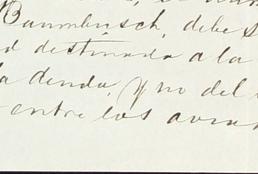 Baumbusch, debe s
d destinada a la
la deuda, y no del
entre los